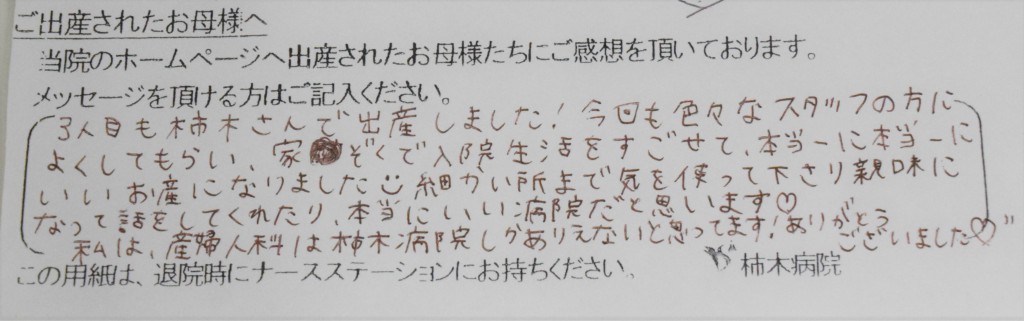 ご出産されたお母様へ
当院のホームページへ出産されたお母様たちにご感想を頂いております。
メッセージを頂ける方はご記入ください。
3人目も柿木さんで出産しました!今回も色々なスタッフの方に
よくしてもらい、家ぞくで入院生活をすごせて、本当ーに本当ーに
いいお産になりました☺細かい所まで気を使って下さり親味に
なって話をしてくれたり、本当にいい病院だと思います♡
私は、産婦人科は柿木病院しかありえないと思ってます!ありがとう
ございました♡"
この用紙は、退院時にナースステーションにお持ちください。
柿木病院